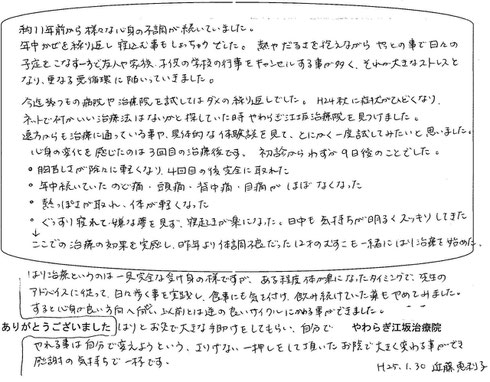 約11年前から様々な心身の不調が続いていました。
年中かぜを繰り返し寝込む事もしょっちゅうでした。熱やだるさを抱えながらやっとの事で日々の
予定をこなす一方で友人や家族、子供の学校の行事をキャンセルする事が多く、それが大きなストレスと
なり、更なる悪循環に陥っていきました。
今迄幾つもの病院や治療院を試してはダメの繰り返しでした。H24秋に症状がひどくなり、
ネットで何かいい治療法はないかと探していた時やわらぎ江坂治療院を見つけました。
遠方からも治療に通っている事や、具体的な体験談を見て、とにかく一度試してみたいと思いました。
心身の変化を感じたのは3回目の治療後です。初診からわずか9日後のことでした。
・胸苦しさが徐々に軽くなり、4回目の後完全に取れた
・年中続いていたのど痛・頭痛・背中痛・目痛がほぼなくなった
・熱っぽさが取れ、体が軽くなった
・ぐっすり寝れて嫌な夢を見ず、寝起きが楽になった。日中も気持ちが明るくスッキリしてきた
→ここでの治療の効果を実感し、昨年より体調不良だった12才のむすこも一緒にはり治療を始めた。
はり治療というのは一見完全な受け身の様ですが、ある程度体が楽になったタイミングで、先生の
アドバイスに従って、日々歩く事を実践し、食事にも気を付け、飲み続けていた薬もやめてみました。
すると心身が良い方向へ向い、以前とは逆の良いサイクルにのれる事ができました。
ありがとうございました はりとお灸で大きな手助けをしてもらい、自分で やわらぎ江坂治療院
やれる事は自分で変えようという、よりけない一押しをして頂いたお陰で大きく変わる事ができ
感謝の気持ちで一杯です。 H25.1.30 近藤